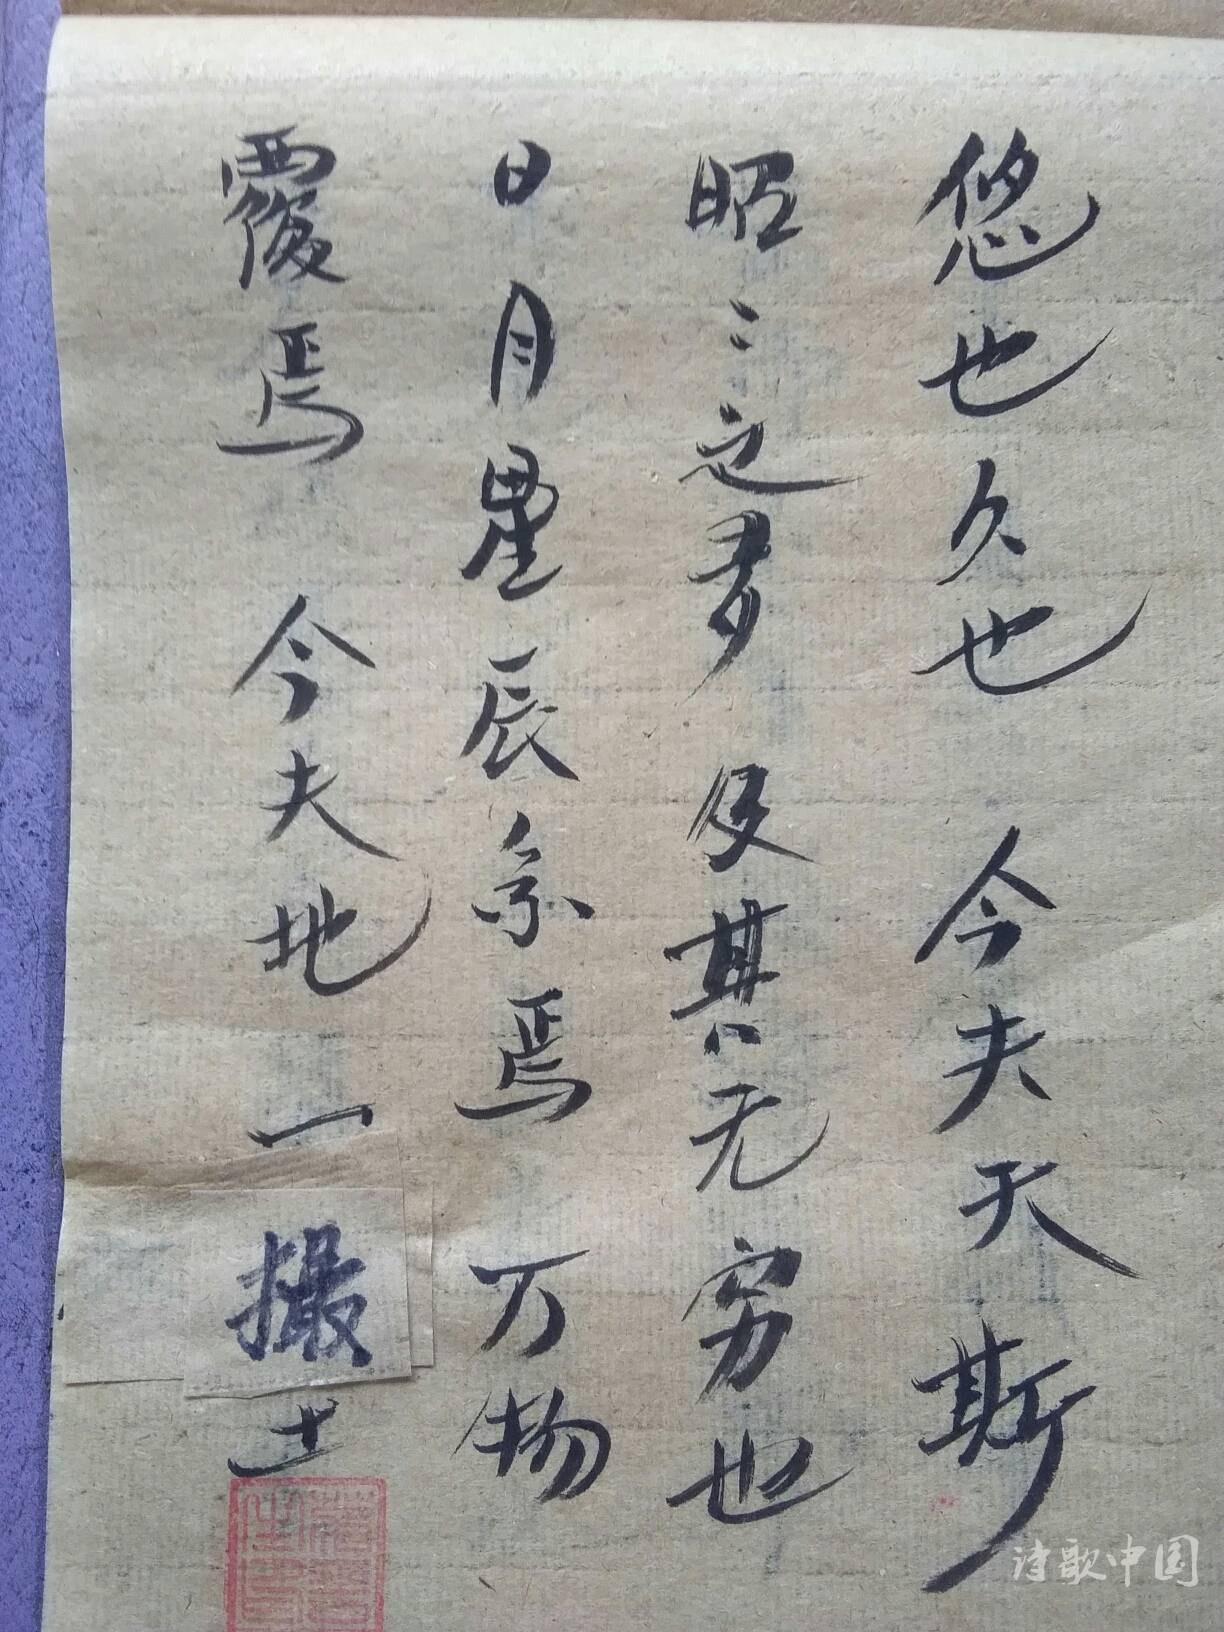 悠也久也今夫天斯
昭〻之多及其无穷也
日月星辰系焉万物
覆焉今夫地一撮土
诗歌中国